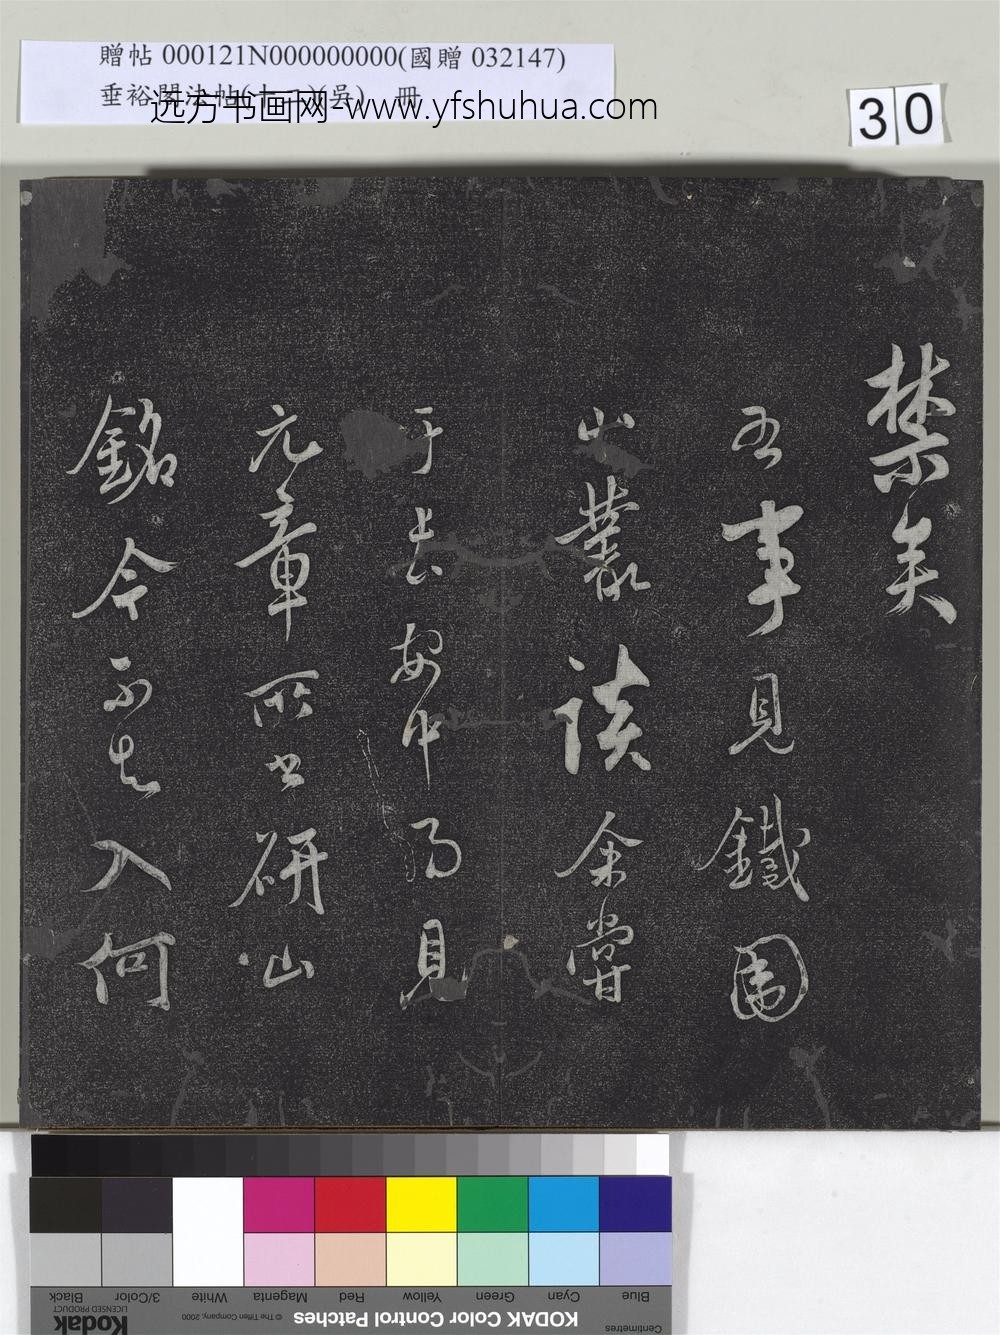 贈帖 000121N000000000(國贈 032147)
垂裕閣法帖(十 吳) 冊
远方书画网-www.yfshuhua.com
30
禁矣
右事見鐵圍
山叢談余嘗
于長安中得見
元章所書研山
銘今不知入何
Black
3/Color
White
Magenta
Red
Yellow
Green
Cyan
Blue
LICENSED PRODUCT
Kodak
© The Tiffen Company, 2000
KODAK Color Control Patches
Centimetres